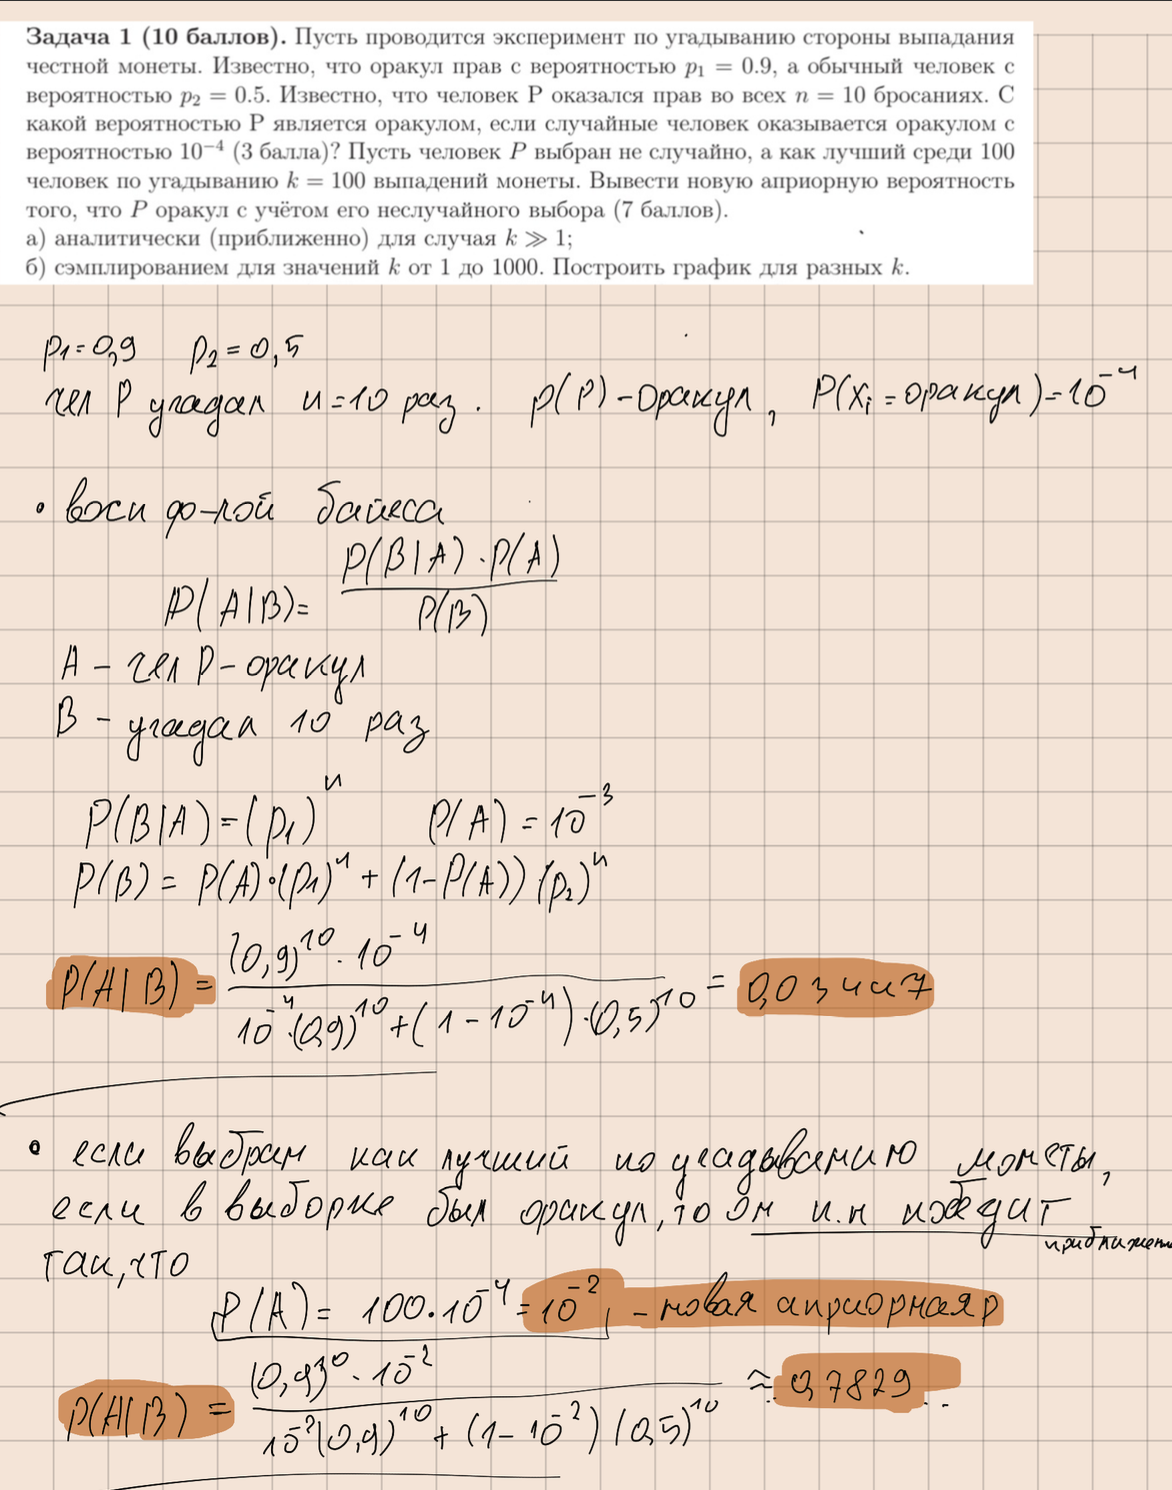 Задача 1 (10 баллов). Пусть проводится эксперимент по угадыванию стороны выпадания
честной монеты. Известно, что оракул прав с вероятностью p₁ = 0.9, а обычный человек с
вероятностью p₂ = 0.5. Известно, что человек P оказался прав во всех n = 10 бросаниях. С
какой вероятностью P является оракулом, если случайные человек оказывается оракулом с
вероятностью 10⁻⁴ (3 балла)? Пусть человек P выбран не случайно, а как лучший среди 100
человек по угадыванию k = 100 выпадений монеты. Вывести новую априорную вероятность
того, что P оракул с учётом его неслучайного выбора (7 баллов).
а) аналитически (приближенно) для случая k ≫ 1;
б) сэмплированием для значений k от 1 до 1000. Построить график для разных k.
p₁ = 0,9 p₂ = 0,5
чел P угадал n = 10 раз. p(P) - Оракул, P(xᵢ = оракул) = 10⁻⁴
• восп фо-лой байеса
P(A|B) = P(B|A) · P(A) / P(B)
A - чел P - оракул
B - угадал 10 раз
P(B|A) = (p₁)ⁿ P(A) = 10⁻³
P(B) = P(A) · (p₁)ⁿ + (1 - P(A)) (p₂)ⁿ
P(A|B) = (0,9)¹⁰ · 10⁻⁴ / 10⁻⁴ · (0,9)¹⁰ + (1 - 10⁻⁴) · (0,5)¹⁰ = 0,03447
• если выбран как лучший по угадыванию монеты,
если в выборке был оракул, то он и победит
приближен
так, что
P(A) = 100 · 10⁻⁴ = 10⁻² - новая априорная p
P(A|B) = (0,9)¹⁰ · 10⁻² / 10⁻² (0,9)¹⁰ + (1 - 10⁻²) (0,5)¹⁰ ≈ 0,7829